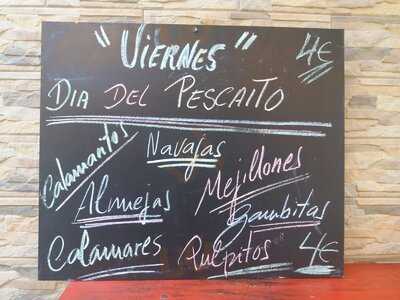 "VIERNES" 4€
DIA DEL PESCAITO
Navajas
Calamaritos
Almejas
Mejillones
Gambitas
Calamares Pulpitos 4€